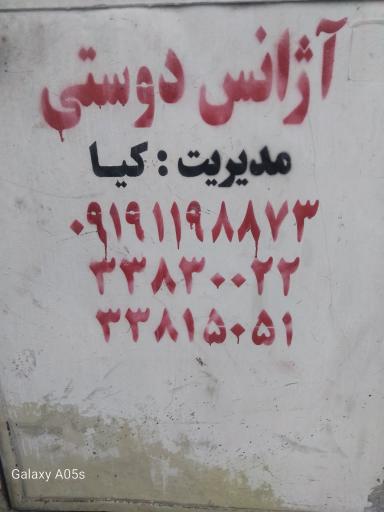 آژانس دوستی
مدیریت : کیا
۰۹۱۹۱۱۹۸۸۷۳
۳۳۸۳۰۰۲۲
۳۳۸۱۵۰۵۱
Galaxy A05s